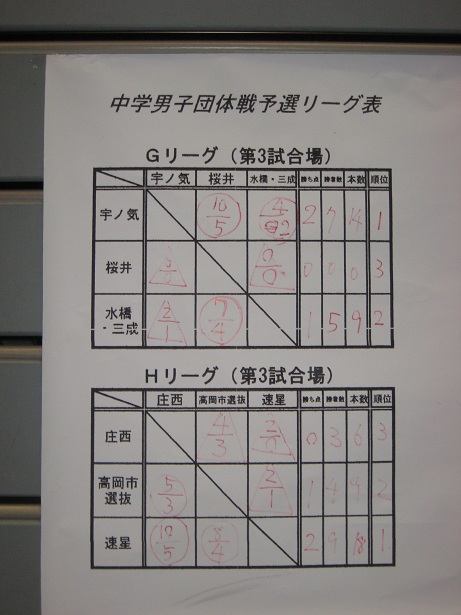 中学男子団体戦予選リーグ表
Gリーグ（第3試合場）
宇ノ気 桜井 水橋・三成 勝ち点 勝者数 本数 順位
宇ノ気 10/5 4/2 2 7 14 1
桜井 0/0 0 0 0 3
水橋・三成 2/1 7/4 1 5 9 2
Hリーグ（第3試合場）
庄西 高岡市選抜 速星 勝ち点 勝者数 本数 順位
庄西 4/3 0 3 6 3
高岡市選抜 5/3 2/1 1 4 2
速星 10/5 2 9 18 1